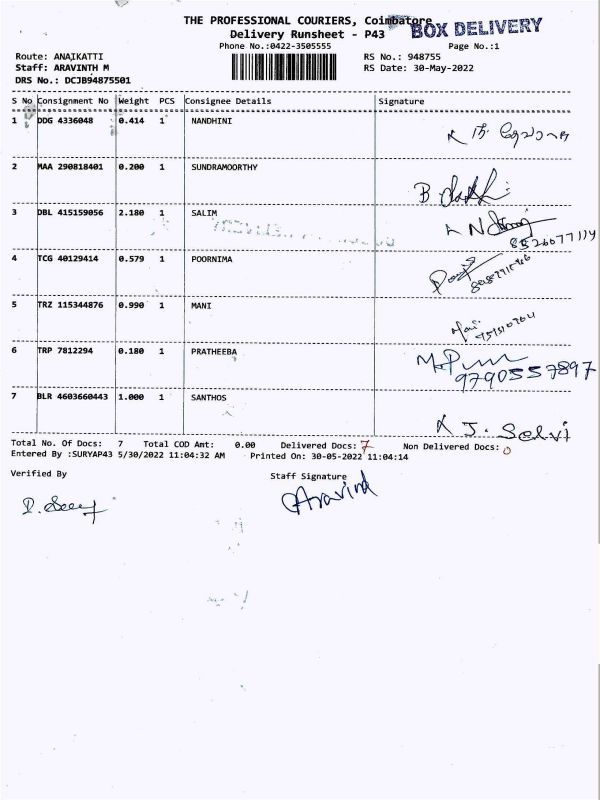 THE PROFESSIONAL COURIERS, Coimbatore
BOX DELIVERY
Delivery Runsheet - P43
Phone No.:0422-3505555 Page No.:1
Route: ANAIKATTI RS No.: 948755
Staff: ARAVINTH M RS Date: 30-May-2022
DRS No.: DCJB94875501
S No Consignment No Weight PCS Consignee Details Signature
1 DDG 4336048 0.414 1 NANDHINI
2 MAA 290818401 0.200 1 SUNDRAMOORTHY
B
3 DBL 415159056 2.180 1 SALIM
8526677114
4 TCG 40129414 0.579 1 POORNIMA
5 TRZ 115344876 0.990 1 MANI
Mani
6 TRP 7812294 0.180 1 PRATHEEBA
9790557897
7 BLR 4603660443 1.000 1 SANTHOS
J. Selvi
Total No. Of Docs: 7 Total COD Amt: 0.00 Delivered Docs: 7 Non Delivered Docs: 0
Entered By :SURYAP43 5/30/2022 11:04:32 AM Printed On: 30-05-2022 11:04:14
Verified By Staff Signature
Aravind